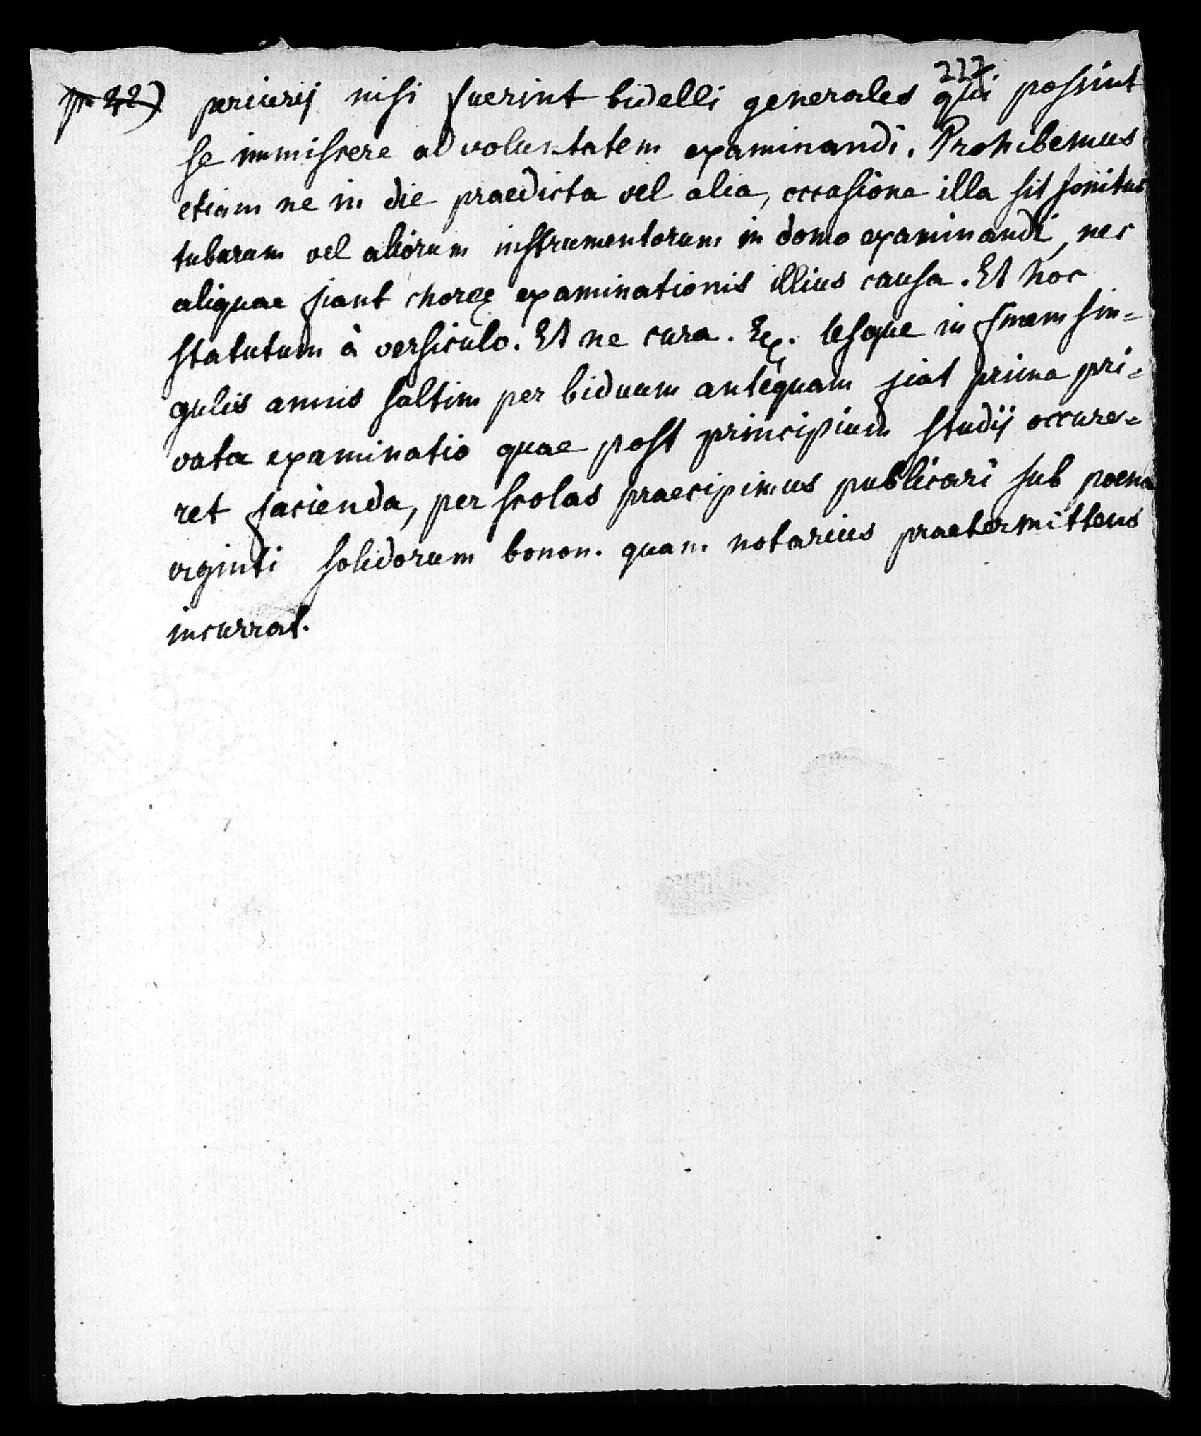 227.
p. 22) periurij nisi fuerint bidelli generales qui possint
se immiscere ad voluntatem examinandi. Prohibemus
etiam ne in die praedicta vel alia, occasione illa sit sonitus
tubarum vel aliorum instrumentorum in domo examinandi, nec
aliquae fiant choreę examinationis illius causa. Et hoc
statutum à versiculo. Et ne cura. Usque in finem sin=
gulis annis saltim per biduum antequam fiat prima pri=
vata examinatio quae post principium studij occure=
ret facienda, per scolas praecipimus publicari sub poena
viginti solidorum bonon. quam notarius praetermittens
incurrat.